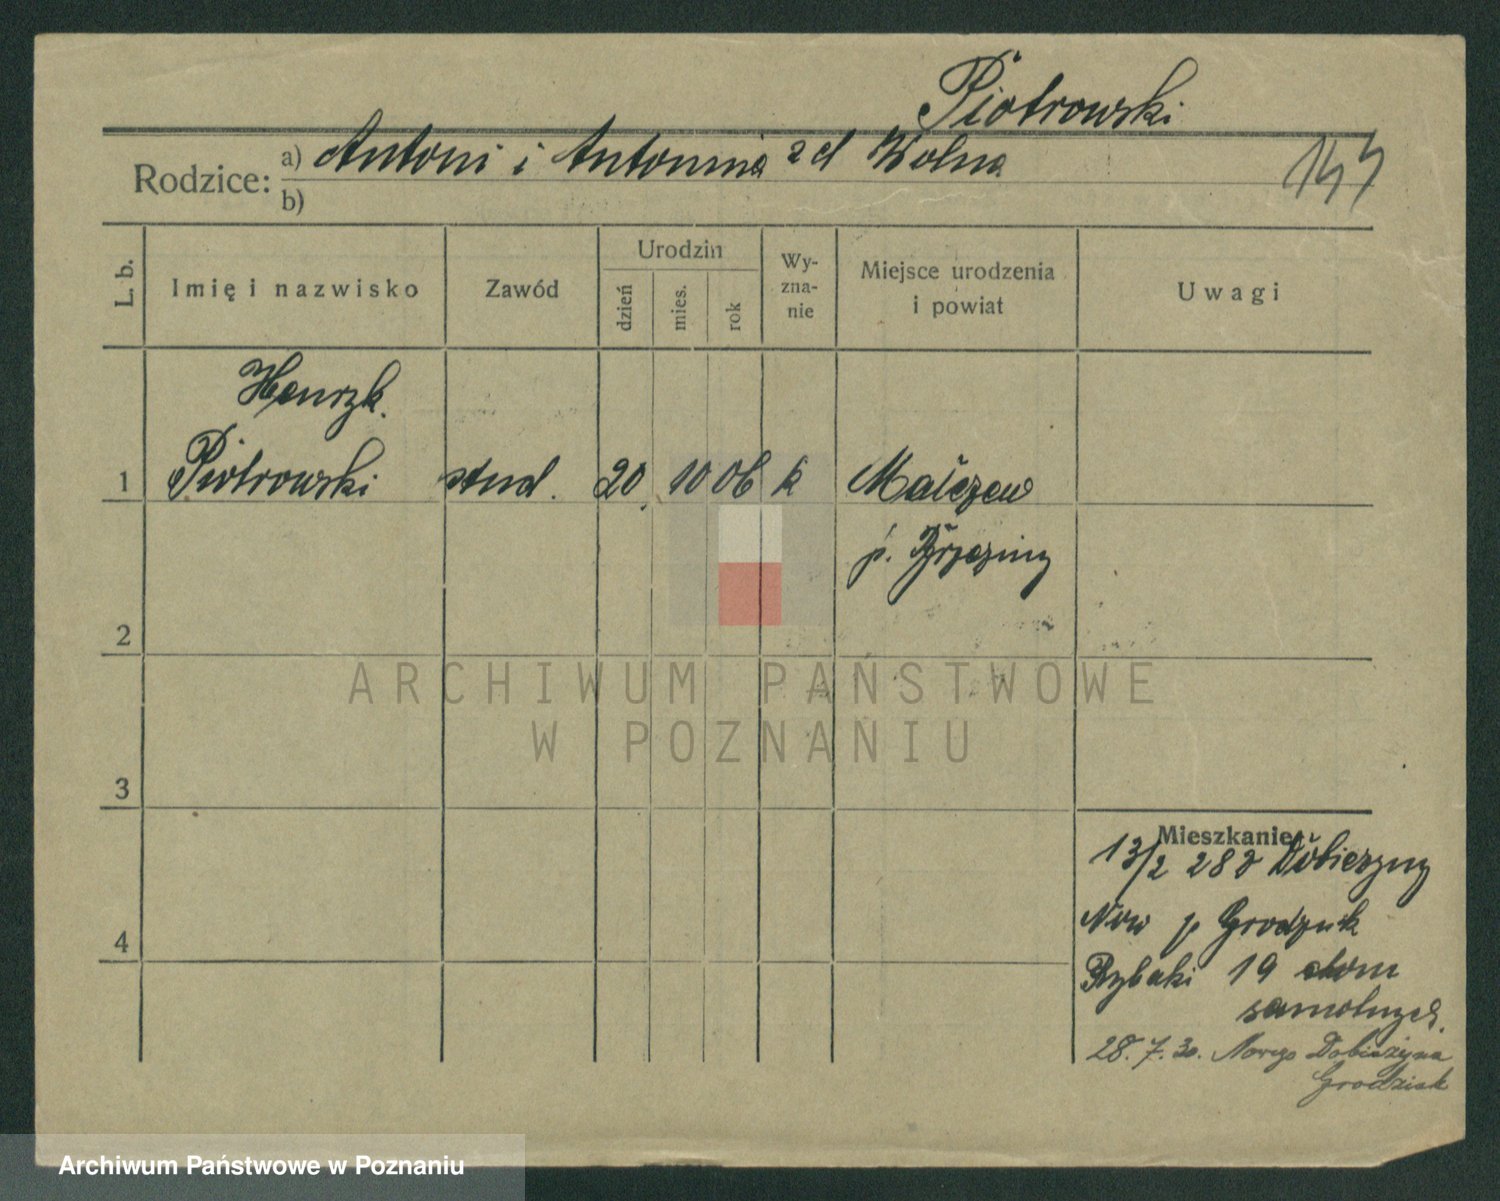 Piotrowski
Rodzice: a) Antoni i Antonina zd Wolna
b)
144
L. b.
Imię i nazwisko
Zawód
Urodzin
dzień
mies.
rok
Wy-
zna-
nie
Miejsce urodzenia
i powiat
Uwagi
Henryk.
1 Piotrowski stud. 20. 10 06 k Malczew
p. Brzeziny
2
3
4
Mieszkanie:
13/2 28 z Dobieszyny
Now p Grodzisk
Rybaki 19 dom
samotnych.
28. 7. 30. Dobieżyna
Grodzisk
ARCHIWUM PAŃSTWOWE
W POZNANIU
Archiwum Państwowe w Poznaniu